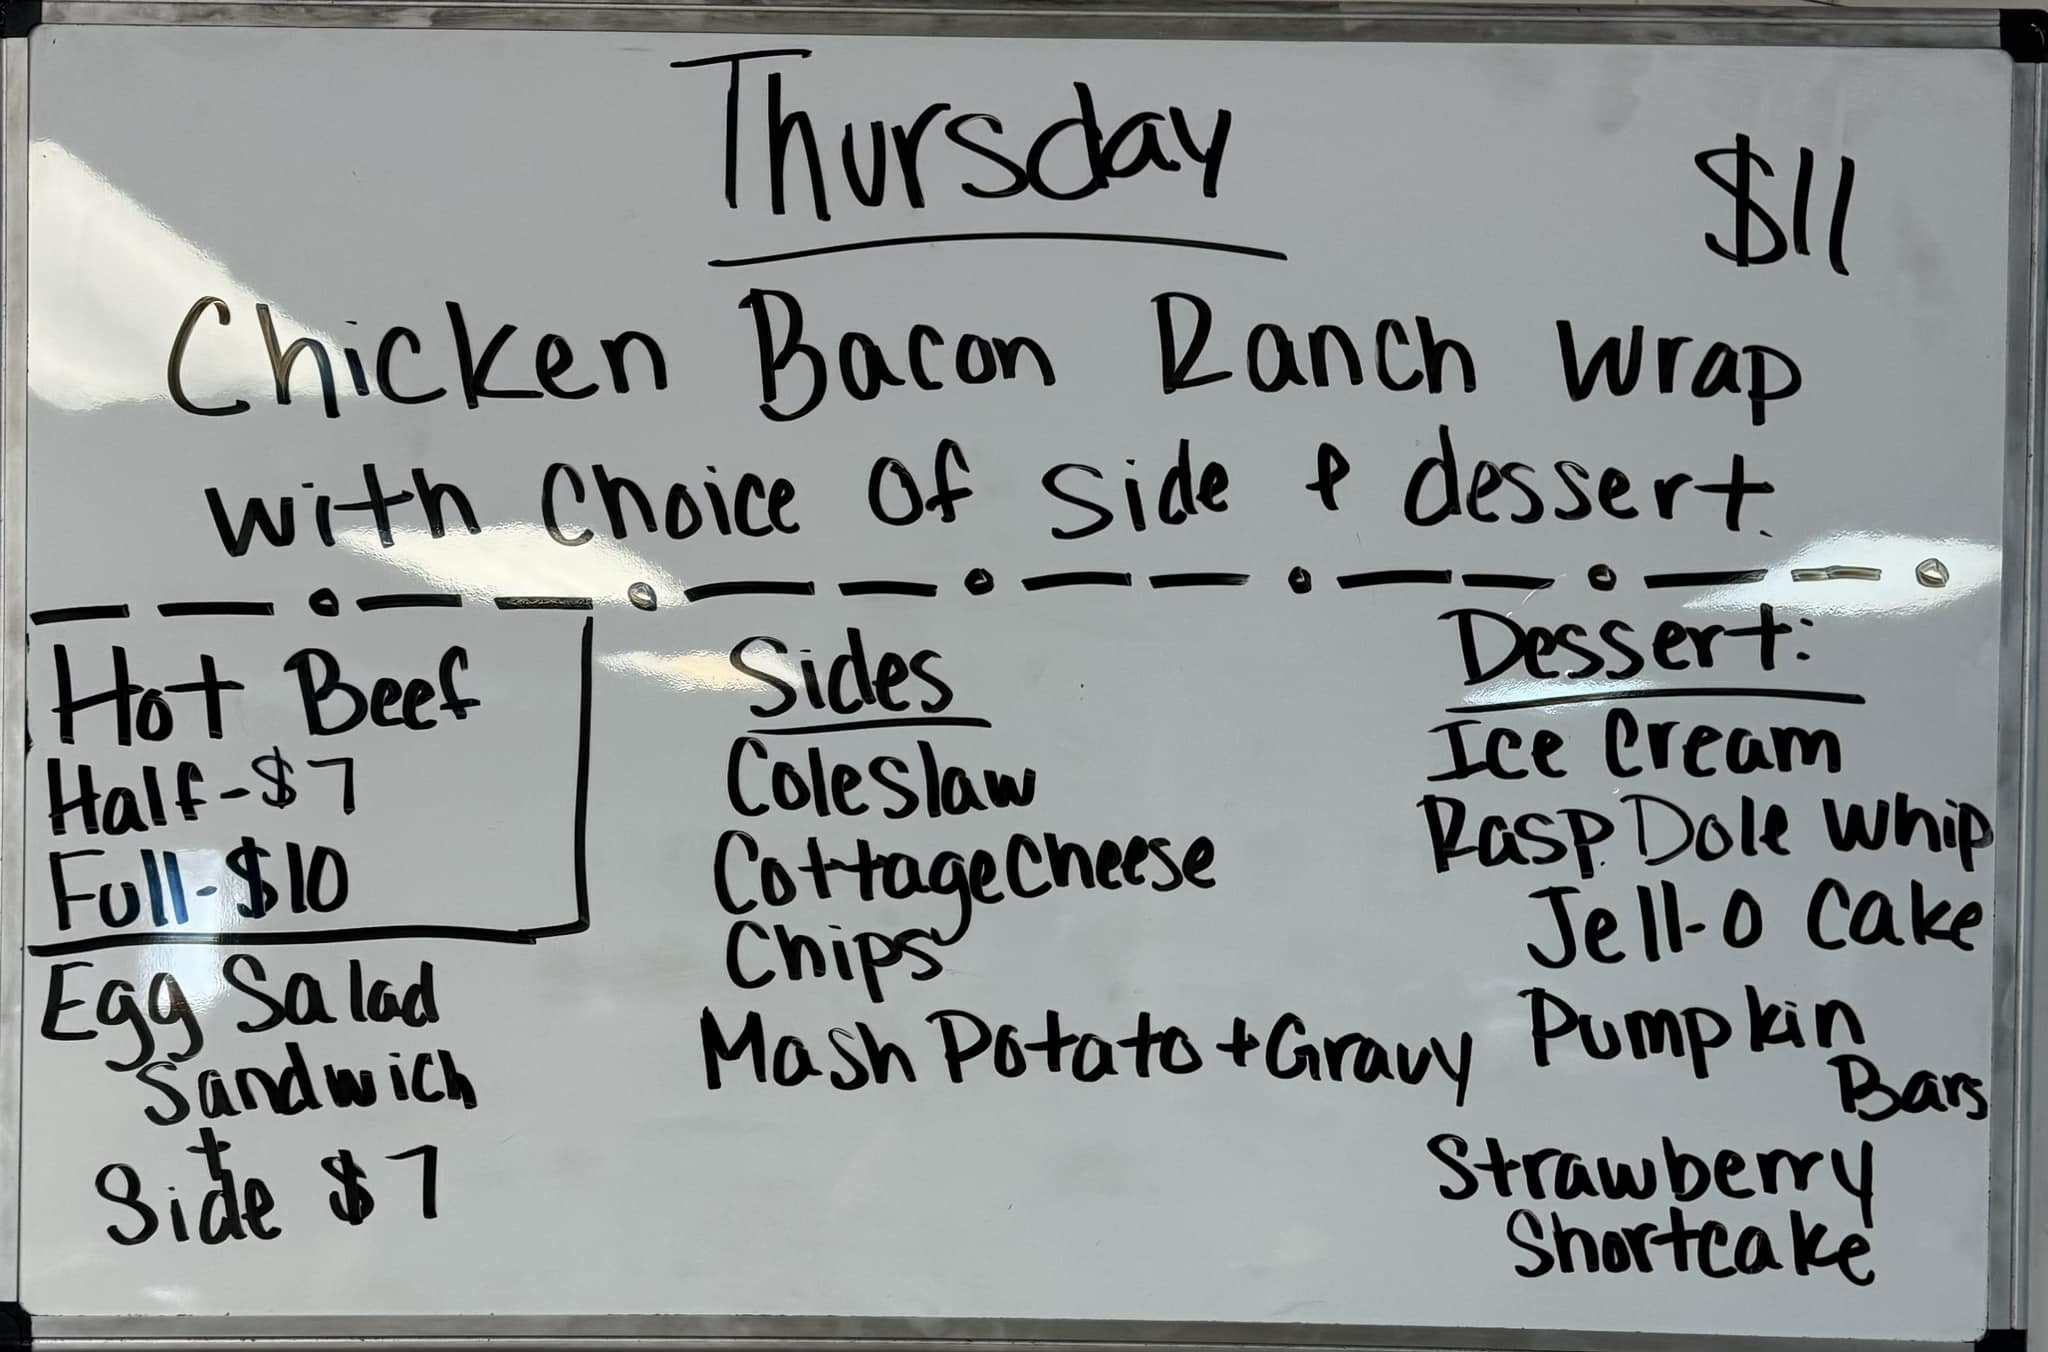 Thursday
$11
Chicken Bacon Ranch Wrap
with choice of side & dessert.
Hot Beef
Half-$7
Full-$10
Egg Salad
Sandwich
+
Side $7
Sides
Coleslaw
Cottage Cheese
Chips
Mash Potato + Gravy
Dessert:
Ice Cream
Rasp. Dole Whip
Jell-O Cake
Pumpkin
Bars
Strawberry
Shortcake